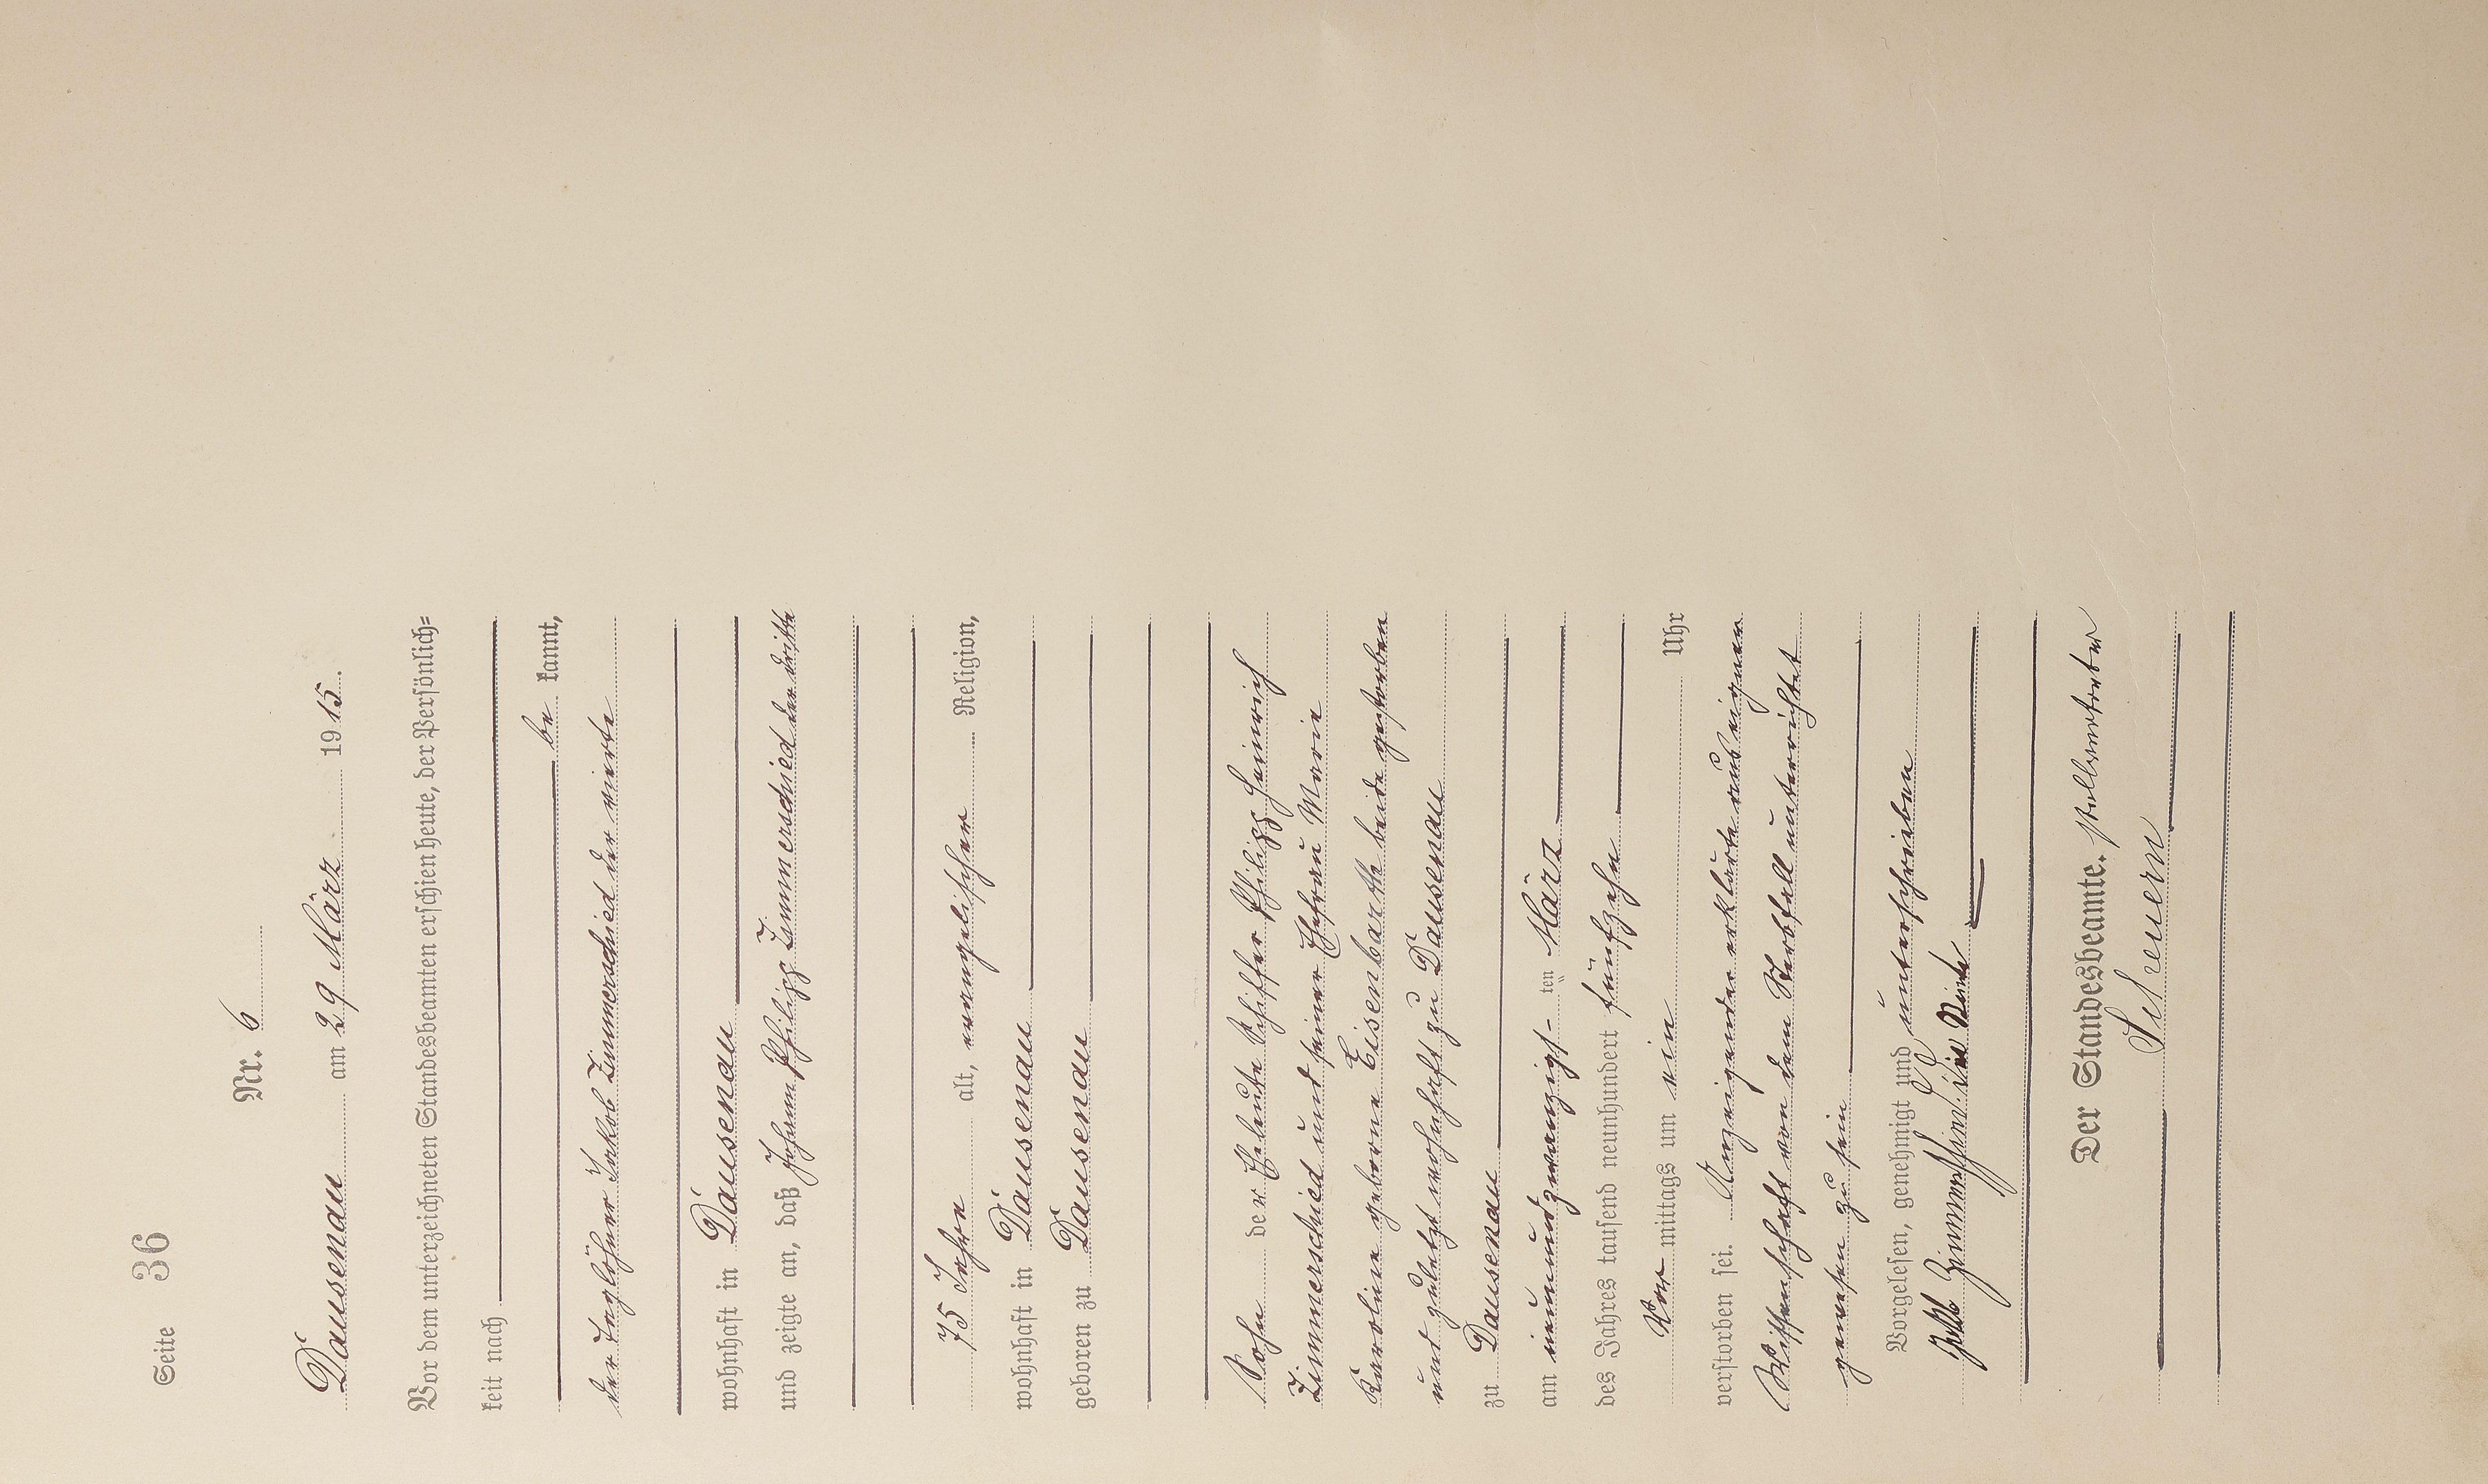 Seite 36
Nr. 6
Dausenau am 29 März 1915.
Vor dem unterzeichneten Standesbeamten erschien heute, der Persönlich=
keit nach
be kannt,
der Taglöhner Jakob Zimmerschied der vierte
wohnhaft in Dausenau
und zeigte an, daß Johann Philipp Zimmerschied der dritte
75 Jahre alt, evangelischer Religion,
wohnhaft in Dausenau
geboren zu Dausenau
Sohn der Eheleute Schiffer Philipp Heinrich
Zimmerschied und seiner Ehefrau Marie
Karoline geborne Eisenbarth beide gestorben
und zuletzt wohnhaft zu Dausenau
zu Dausenau
am neunundzwanzigs- ten März
des Jahres tausend neunhundert fünfzehn
Vor mittags um ein Uhr
verstorben sei. Anzeigender erklärte aus eigener
Wissenschaft von dem Sterbfall unterrichtet
gewesen zu sein
Vorgelesen, genehmigt und unterschrieben
Zimmerschied
Der Standesbeamte. Stellvertreter
Scheuern